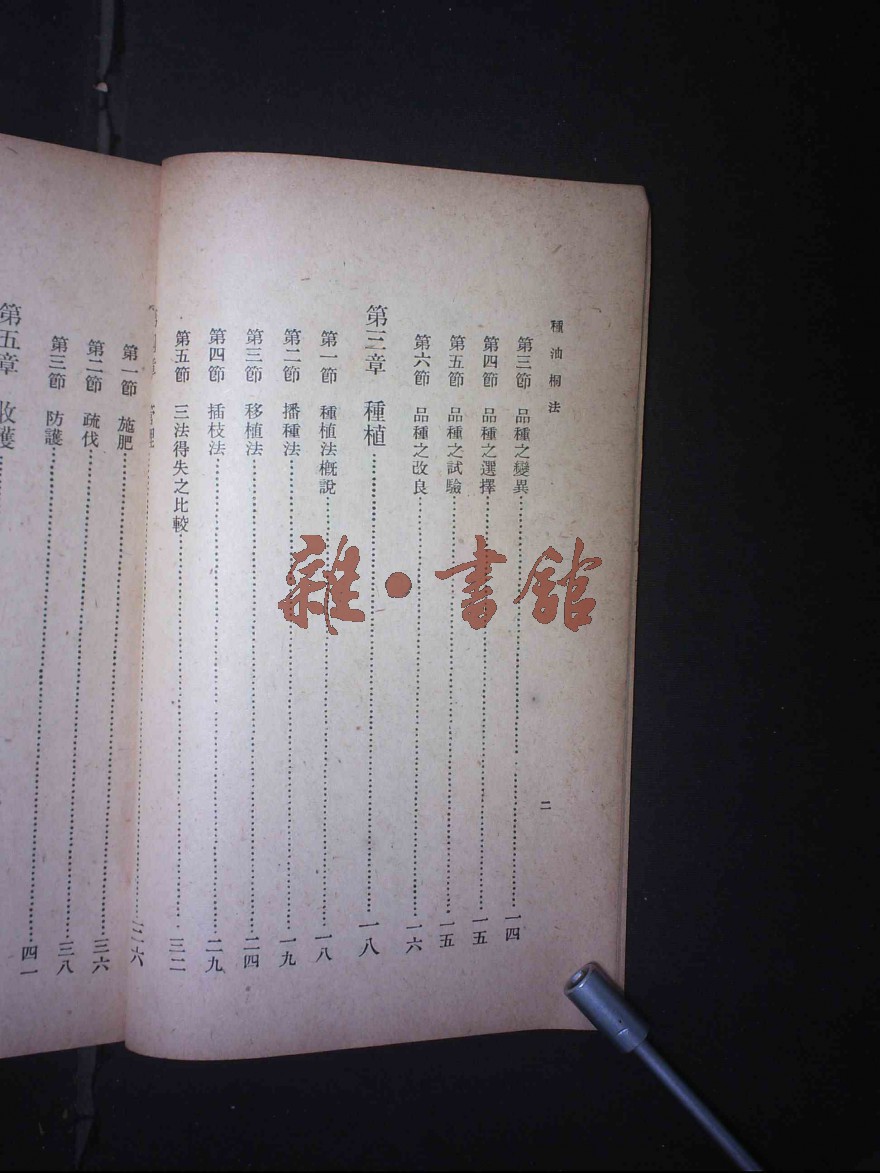 種油桐法
二
第三節 品種之變異……一四
第四節 品種之選擇……一五
第五節 品種之試驗……一五
第六節 品種之改良……一六
第三章 種植……一八
第一節 種植法概說……一八
第二節 播種法……一九
第三節 移植法……二四
第四節 插枝法……二九
第五節 三法得失之比較……三二
管理……三六
第一節 施肥……三六
第二節 疏伐……三八
第三節 防護……四一
第五章 收穫
雜·書館